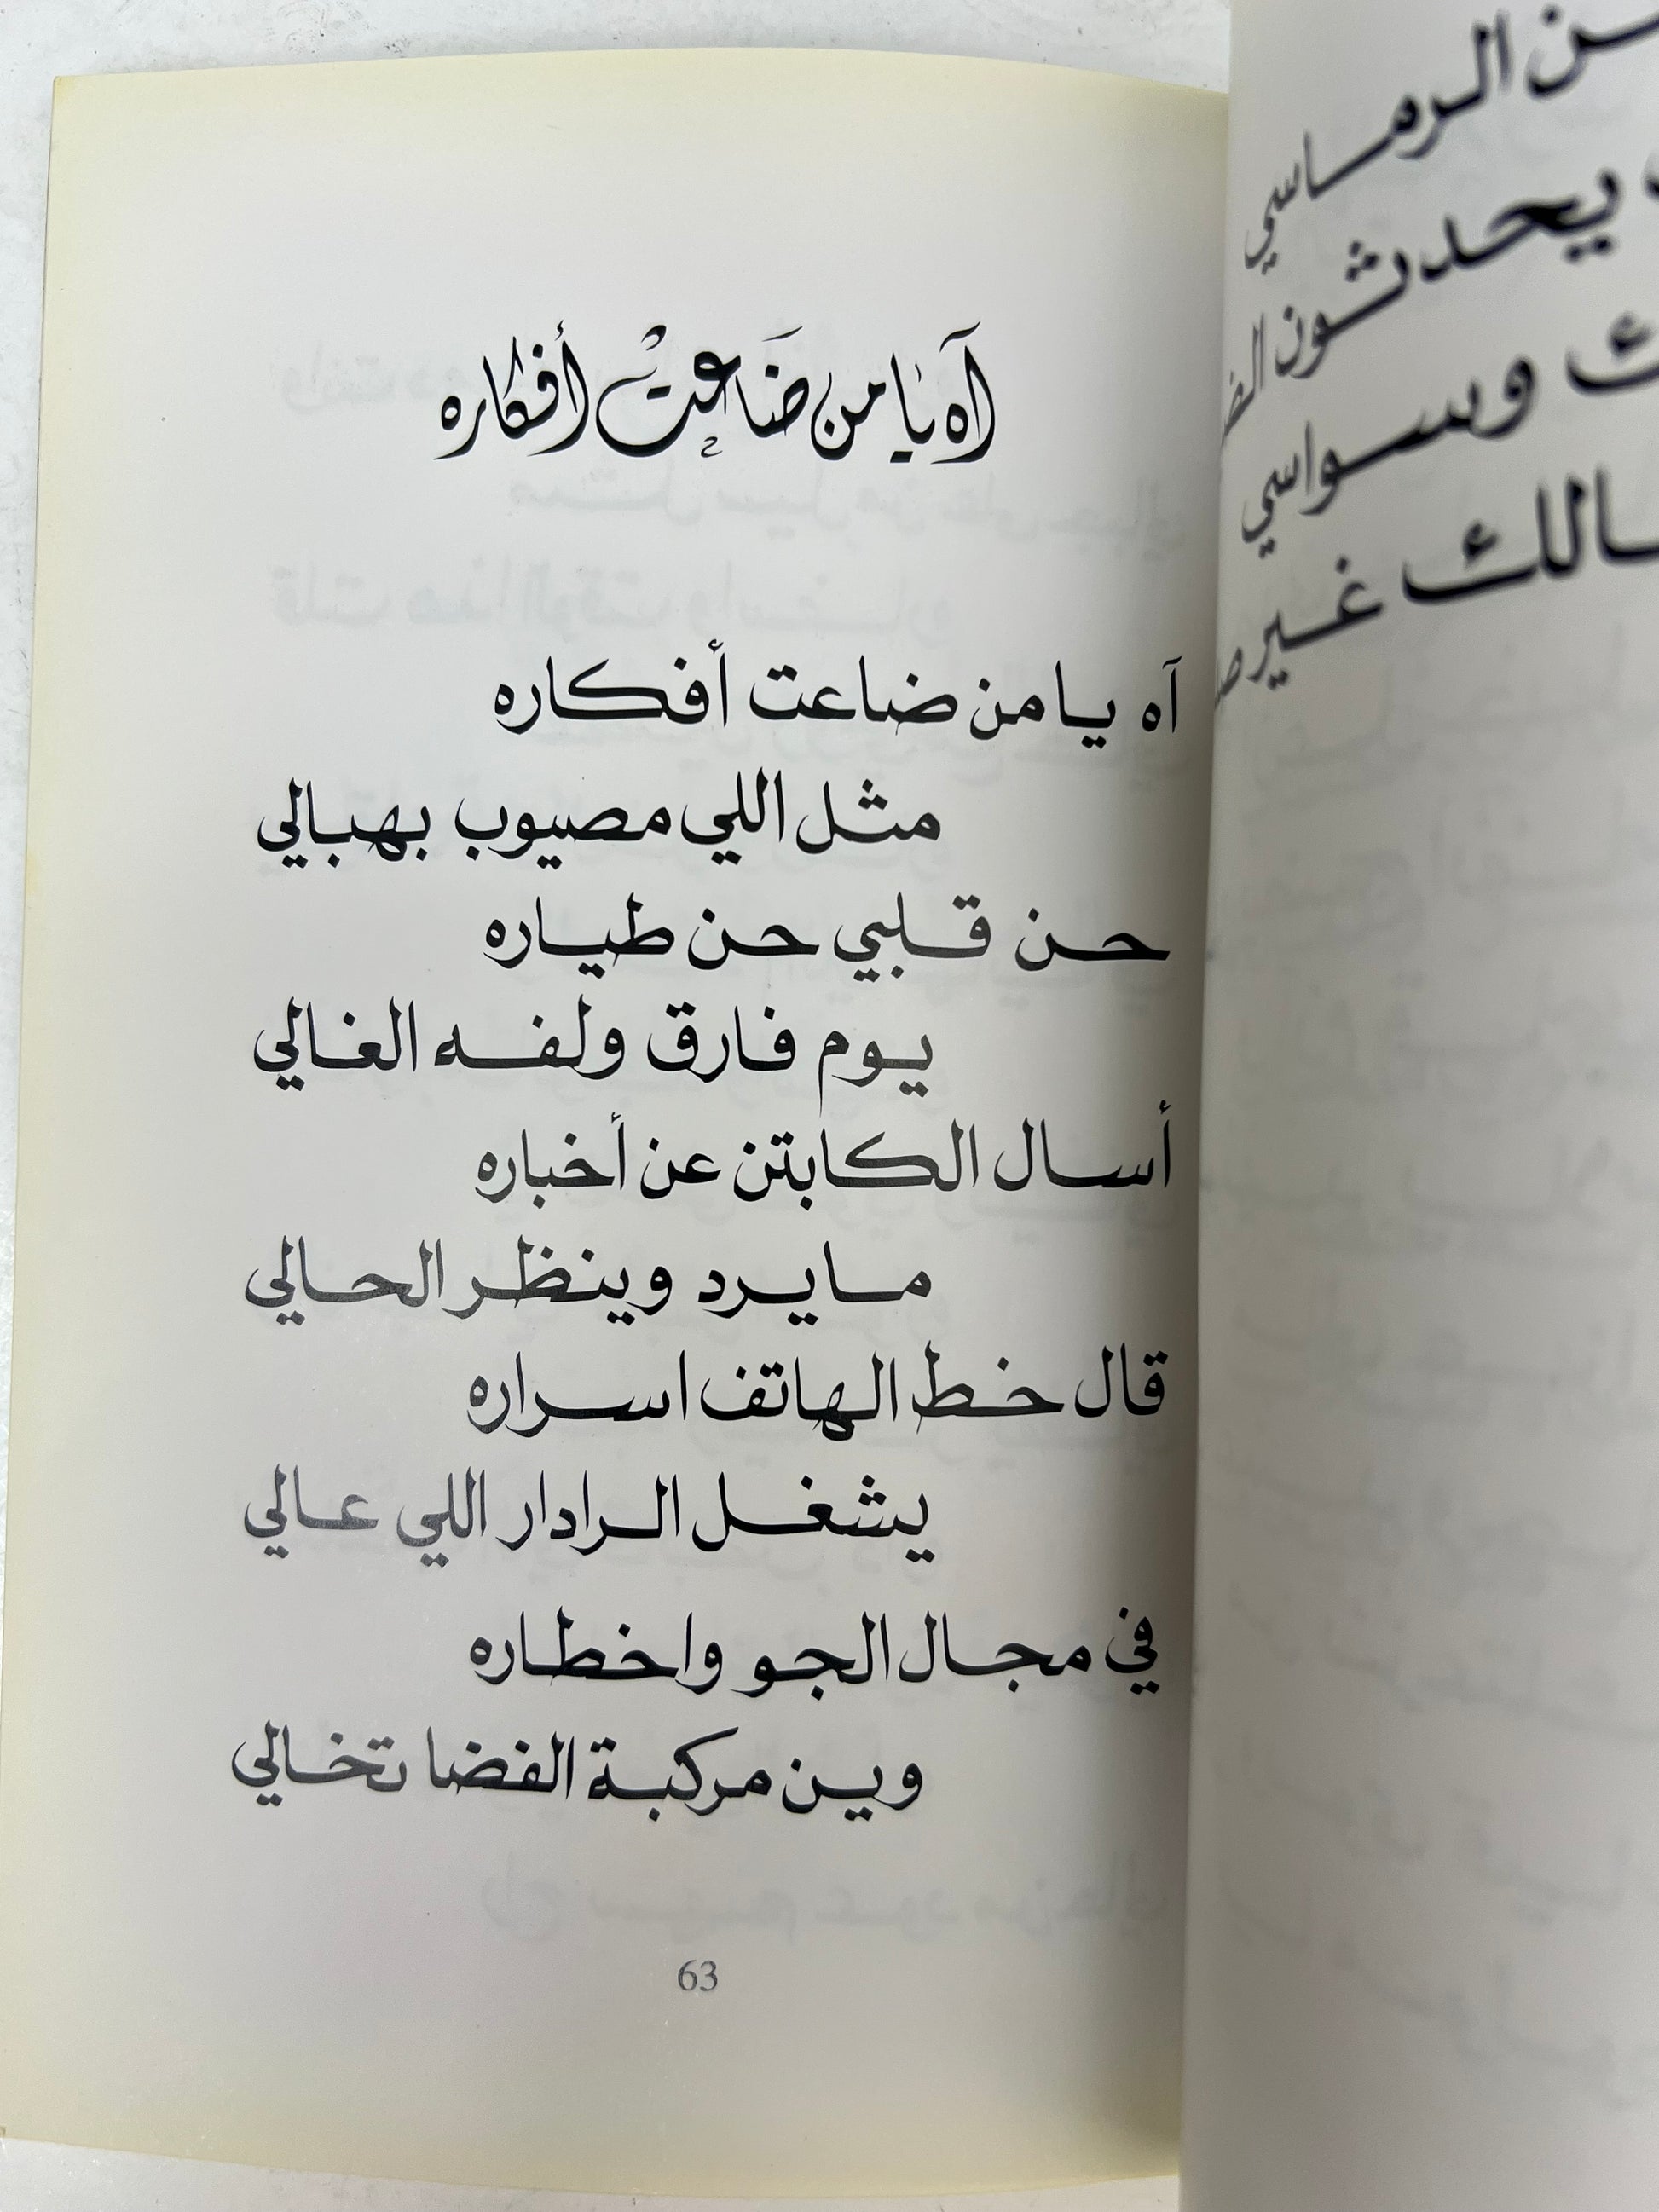 آه يا من ضَاعتْ أفكاره
آه يا من ضاعت أفكاره
مثل اللي مصيوب بهبالي
حن قلبي حن طياره
يوم فارق ولفه الغالي
أسال الكابتن عن أخباره
ما يرد وينظر الحالي
قال خط الهاتف اسراره
يشغل الرادار اللي عالي
في مجال الجو واخطاره
وين مركبة الفضا تخالي
63
ـن الرماسي
يحدثون
وسواسي
ـالك غير